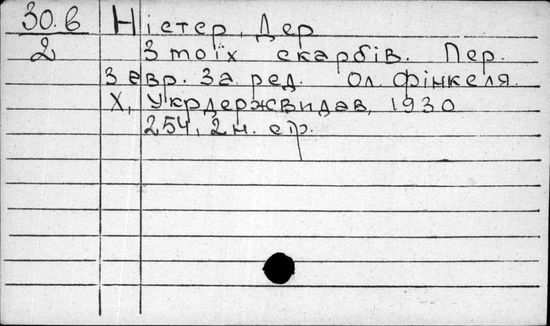 30.в
2
Ністер, Дер
З моїх скарбів. Пер.
З євр. За ред. Ол. Фінкеля.
Х, Укрдержвидав, 1930
254, 2 н. стр.